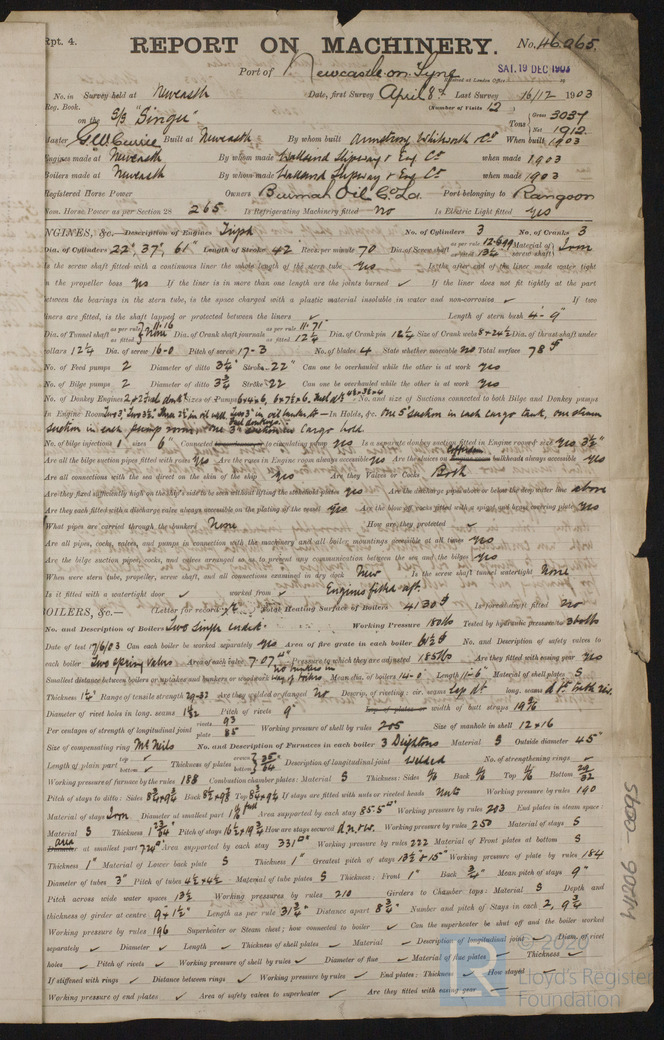 Rpt. 4.
REPORT ON MACHINERY.
No. 46065
Port of Newcastle on Tyne
SAT. 19 DEC 1903
No. in Survey held at Newcastle Date, first Survey April 8th Last Survey 16/12 1903
Reg. Book. (Number of Visits 12)
on the S/S "Singu" Tons Gross 3037 Net 1912
Master Built at Newcastle By whom built Armstrong Whitworth & Co When built 1903
Engines made at Newcastle By whom made Wallsend Slipway & Eng Co when made 1903
Boilers made at Newcastle By whom made Wallsend Slipway & Eng Co when made 1903
Registered Horse Power Owners Burmah Oil Co Ld. Port belonging to Rangoon
Nom. Horse Power as per Section 28 265 Is Refrigerating Machinery fitted no Is Electric Light fitted yes
ENGINES, &c.—Description of Engines Triple No. of Cylinders 3 No. of Cranks 3
Dia. of Cylinders 22", 37", 61" Length of Stroke 42 Revs. per minute 70 Dia. of Screw shaft as per rule 12.699 as fitted 13¼ Material of screw shaft Iron
Is the screw shaft fitted with a continuous liner the whole length of the stern tube yes Is the after end of the liner made water tight
in the propeller boss yes If the liner is in more than one length are the joints burned ✓ If the liner does not fit tightly at the part
between the bearings in the stern tube, is the space charged with a plastic material insoluble in water and non-corrosive ✓ If two
liners are fitted, is the shaft lapped or protected between the liners ✓ Length of stern bush 4'-9"
Dia. of Tunnel shaft as per rule 11.16 as fitted none Dia. of Crank shaft journals as per rule 11.71 as fitted 12¼ Dia. of Crank pin 12¼ Size of Crank webs 8×24½ Dia. of thrust shaft under
collars 12¼ Dia. of screw 16-0 Pitch of screw 17-3 No. of blades 4 State whether moveable no Total surface 78
No. of Feed pumps 2 Diameter of ditto 3¼" Stroke 22" Can one be overhauled while the other is at work yes
No. of Bilge pumps 2 Diameter of ditto 3¾ Stroke 22 Can one be overhauled while the other is at work yes
No. of Donkey Engines Sizes of Pumps No. and size of Suctions connected to both Bilge and Donkey pumps
In Engine Room In Holds, &c. One 5" suction in each cargo tank, one steam
suction in each pump room, one 3" suction in Cargo hold.
No. of bilge injections 1 sizes 6" Connected to circulating pump yes Is a separate donkey suction fitted in Engine room & size yes 3½"
Are all the bilge suction pipes fitted with roses yes Are the roses in Engine room always accessible yes Are the sluices on Cofferdam bulkheads always accessible yes
Are all connections with the sea direct on the skin of the ship yes Are they Valves or Cocks Both
Are they fixed sufficiently high on the ship's side to be seen without lifting the stokehold plates yes Are the discharge pipes above or below the deep water line above
Are they each fitted with a discharge valve always accessible on the plating of the vessel yes Are the blow off cocks fitted with a spigot and brass covering plate yes
What pipes are carried through the bunkers None How are they protected ✓
Are all pipes, cocks, valves, and pumps in connection with the machinery and all boiler mountings accessible at all times yes
Are the bilge suction pipes, cocks, and valves arranged so as to prevent any communication between the sea and the bilges yes
When were stern tube, propeller, screw shaft, and all connections examined in dry dock New Is the screw shaft tunnel watertight None
Is it fitted with a watertight door ✓ worked from Engines fitted aft.
BOILERS, &c.— (Letter for record) Total Heating Surface of Boilers 4130 Is forced draft fitted no
No. and Description of Boilers Two Single ended. Working Pressure 180lbs Tested by hydraulic pressure to 360lbs
Date of test 17/6/03 Can each boiler be worked separately yes Area of fire grate in each boiler 61½ No. and Description of safety valves to
each boiler Two spring valves Area of each valve 7.07 Pressure to which they are adjusted 185lbs Are they fitted with easing gear yes
Smallest distance between boilers or uptakes and bunkers or woodwork no bunkers in way of boilers Mean dia. of boilers 14-0 Length 11-6 Material of shell plates S
Thickness 1¼ Range of tensile strength 29-32 Are they welded or flanged no Descrip. of riveting: cir. seams Lap dt long. seams
Diameter of rivet holes in long. seams Pitch of rivets 9" width of butt straps
Per centages of strength of longitudinal joint rivets 93 plate 85 Working pressure of shell by rules 205 Size of manhole in shell 12×16
Size of compensating ring McNeils No. and Description of Furnaces in each boiler 3 Deightons Material S Outside diameter 45"
Length of plain part top ✓ bottom ✓ Thickness of plates crown bottom Description of longitudinal joint Welded No. of strengthening rings ✓
Working pressure of furnace by the rules 188 Combustion chamber plates: Material S Thickness: Sides Back Top Bottom
Pitch of stays to ditto: Sides Back Top If stays are fitted with nuts or riveted heads Nuts Working pressure by rules 190
Material of stays Iron Diameter at smallest part Area supported by each stay 85.5 Working pressure by rules 203 End plates in steam space:
Material S Thickness Pitch of stays How are stays secured d.n.&w. Working pressure by rules 250 Material of stays S
Area at smallest part Area supported by each stay 331 Working pressure by rules 222 Material of Front plates at bottom S
Thickness 1" Material of Lower back plate S Thickness 1" Greatest pitch of stays 13½ × 15" Working pressure of plate by rules 184
Diameter of tubes 3" Pitch of tubes 4¼×4¼ Material of tube plates S Thickness: Front 1" Back ¾" Mean pitch of stays 9"
Pitch across wide water spaces 13½ Working pressures by rules 210 Girders to Chamber tops: Material S Depth and
thickness of girder at centre 9"×1½" Length as per rule 31¾ Distance apart 8¾ Number and pitch of Stays in each 2, 9¾
Working pressure by rules 196 Superheater or Steam chest; how connected to boiler ✓ Can the superheater be shut off and the boiler worked
separately ✓ Diameter ✓ Length ✓ Thickness of shell plates ✓ Material ✓ Description of longitudinal joint ✓ Diam. of rivet
holes ✓ Pitch of rivets ✓ Working pressure of shell by rules ✓ Diameter of flue ✓ Material of flue plates ✓ Thickness ✓
If stiffened with rings ✓ Distance between rings ✓ Working pressure by rules ✓ End plates: Thickness ✓ How stayed ✓
Working pressure of end plates ✓ Area of safety valves to superheater ✓ Are they fitted with easing gear ✓
© 2020
Lloyd's Register
Foundation